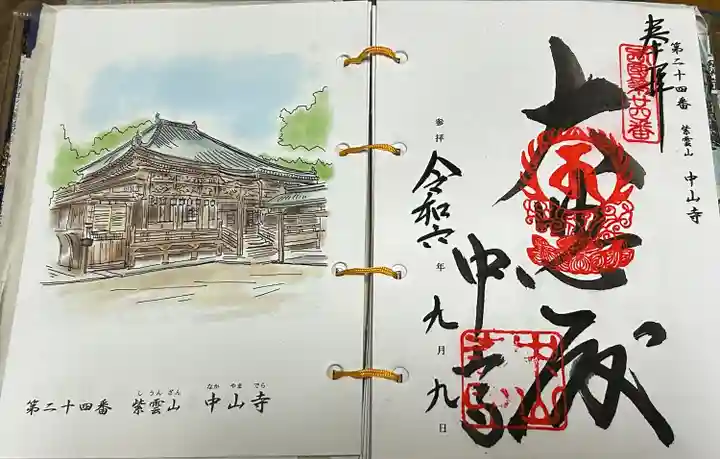 奉拝
第二十四番 紫雲山 中山寺
西国第廿四番
大悲殿
中山寺
参拝
令和六年九月九日
しうんざん なかやまでら
第二十四番 紫雲山 中山寺